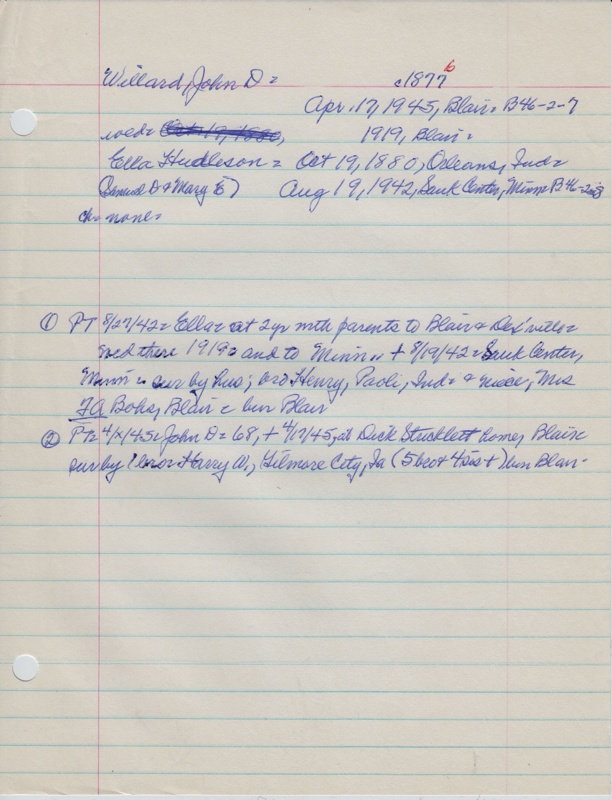 Willard, John D = c1877 6
Apr. 17, 1945, Blair = B46-2-7
wed = Oct 19, 1880, 1919, Blair =
Ella Hudleson = Oct 19, 1880, Orleans, Ind =
(Samuel D & Mary E) Aug 19, 1942, Sauk Center, Minn B46-2-8
ch = none =
① PT 8/27/42 = Ella = at 2yr with parents to Blair & Dex'ville =
wed there 1919 = and to Minn = + 8/19/42 = Sauk Center,
Minn = sur by hus; bro Henry, Paoli, Ind = & niece, Mrs
FA Bohs, Blair = bur Blair
② PT = 4/x/45 = John D = 68, + 4/17/45, at Dick Stricklett home, Blair =
sur by 1 bro = Harry W., Gilmore City, Ia (5 bro & 4 sis +) bur Blair =